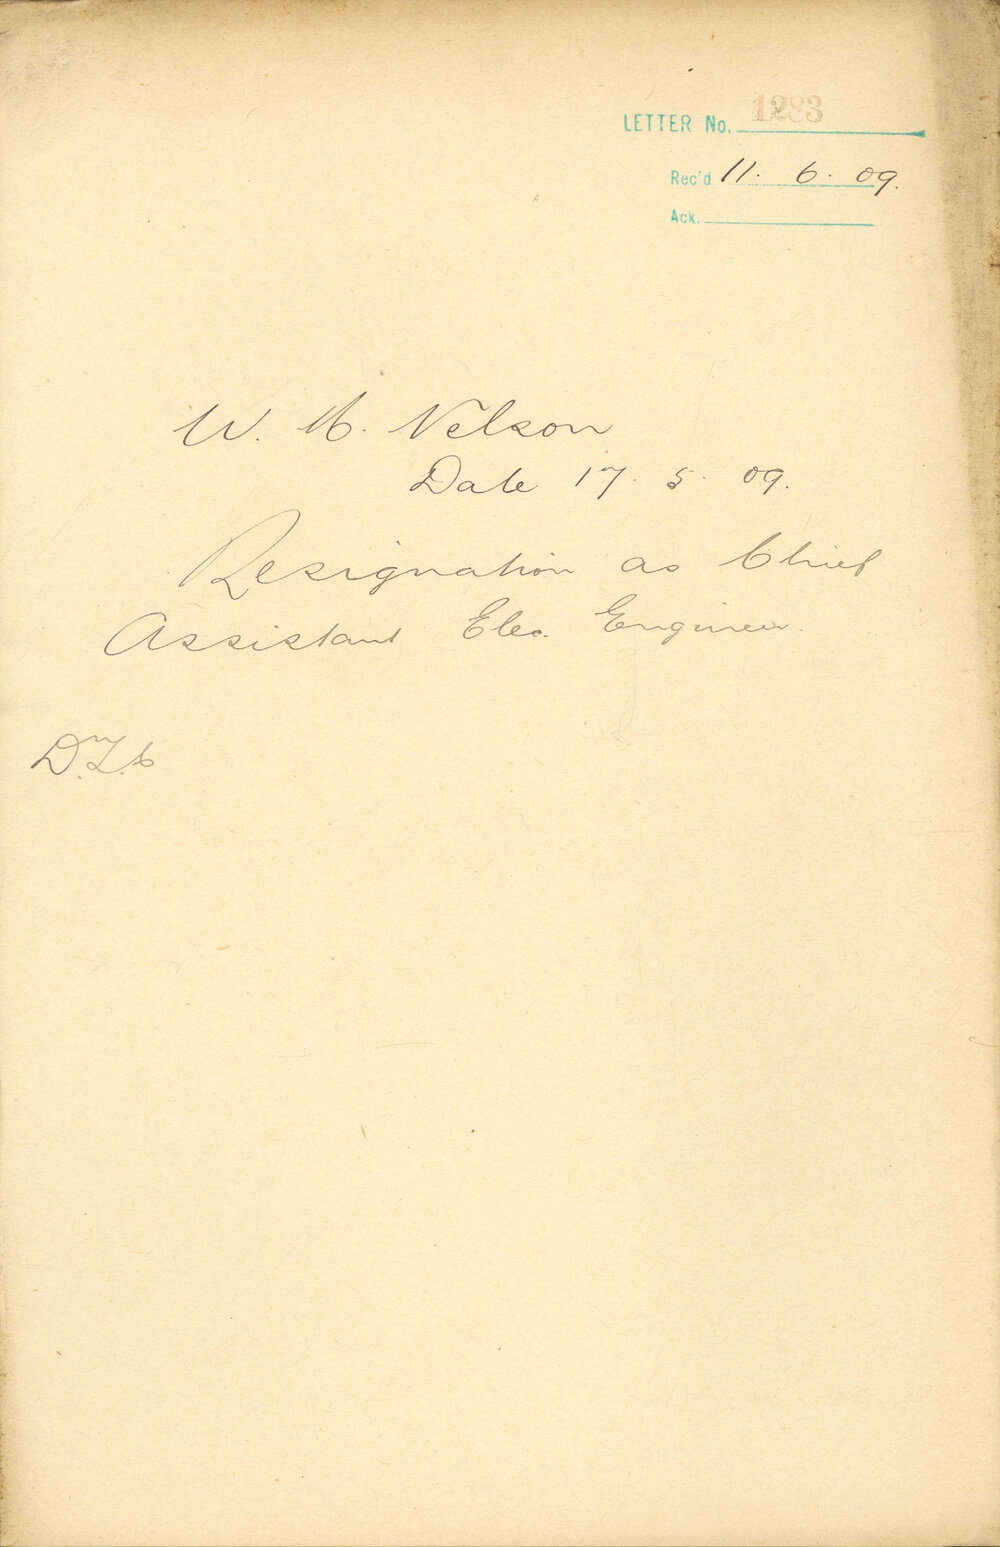 LETTER No. 1283
Rec'd 11. 6. 09.
Ack.
W. H. Nelson
Date 17. 5. 09.
Resignation as Chief
Assistant Elec. Engineer.